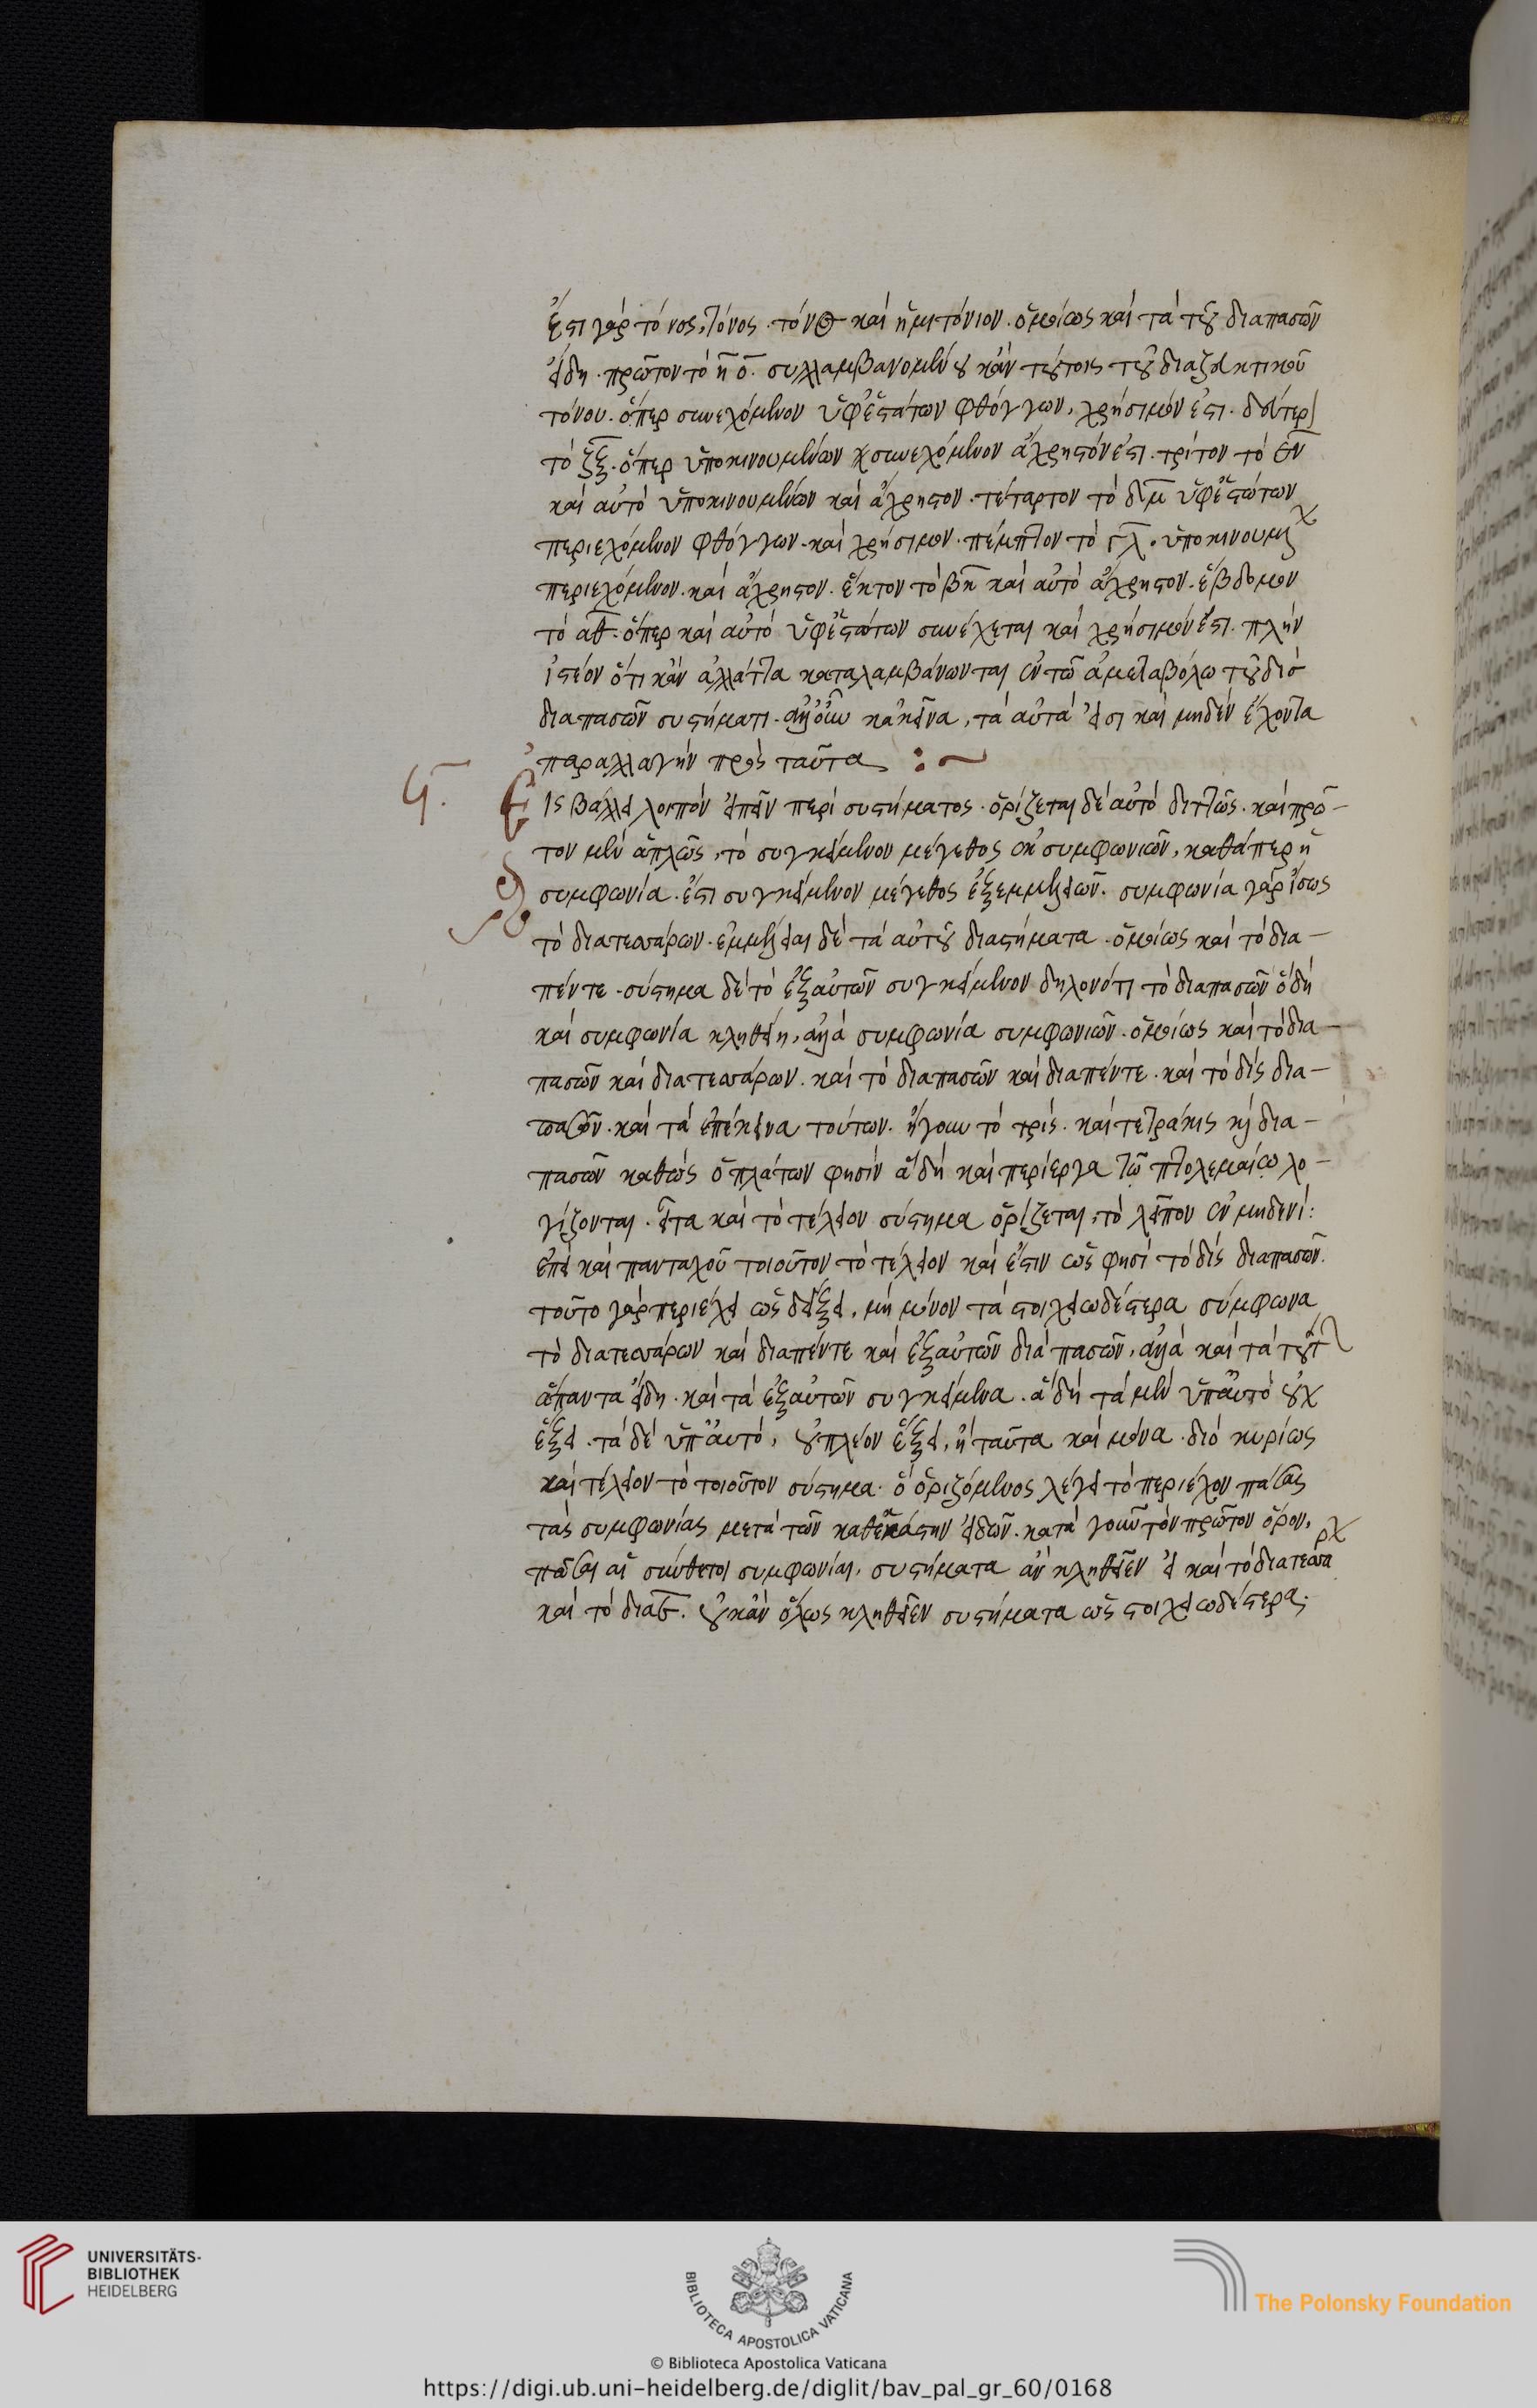 ἔστι γὰρ τόνος, τόνος. τόνος καὶ ἡμιτόνιον. ὁμοίως καὶ τὰ τοῦ διαπασῶν
εἴδη. πρῶτον τὸ η̅ο̅. συλλαμβανομένου κἀν τούτοις τοῦ διαζευκτικοῦ
τόνου. ὅπερ συνεχόμενον ὑφ' ἑστώτων φθόγγων, χρήσιμόν ἐστι. δεύτερον
τὸ ζ̅ξ̅. ὅπερ ὑπὸ κινουμένων συνεχόμενον ἄχρηστόν ἐστι. τρίτον τὸ ε̅ν̅
καὶ αὐτὸ ὑπὸ κινουμένων καὶ ἄχρηστον. τέταρτον τὸ δ̅μ̅ ὑφ' ἑστώτων
περιεχόμενον φθόγγων. καὶ χρήσιμον. πέμπτον τὸ γ̅λ̅. ὑπὸ κινουμένων
περιεχόμενον. καὶ ἄχρηστον. ἕκτον τὸ β̅κ̅ καὶ αὐτὸ ἄχρηστον. ἕβδομον
τὸ α̅θ̅. ὅπερ καὶ αὐτὸ ὑφ' ἑστώτων συνέχεται καὶ χρήσιμόν ἐστι. πλὴν
ἰστέον ὅτι κἂν ἀλλάττα καταλαμβάνωνται ἐν τῷ ἀμεταβόλω τοῦ δὶσ
διαπασῶν συστήματι. ἀλλ' οὖν κἀκεῖνα, τὰ αὐτά εἰσι καὶ μηδὲν ἔχοντα
παραλλαγὴν πρὸς ταῦτα :~
ϛ̅.
Εἰσβάλλει λοιπὸν εἰπεῖν περὶ συστήματος. ὁρίζεται δὲ αὐτὸ διττῶς. καὶ πρῶ-
τον μὲν ἁπλῶς, τὸ συγκείμενον μέγεθος ἐκ συμφωνιῶν, καθάπερ ἡ
συμφωνία. ἔστι συγκείμενον μέγεθος ἐξ ἐμμελειῶν. συμφωνία γὰρ ἴσως
τὸ διατεσσάρων. ἐμμέλειαι δὲ τὰ αὐτοῦ διαστήματα. ὁμοίως καὶ τὸ δια-
πέντε. σύστημα δὲ τὸ ἐξ αὐτῶν συγκείμενον δηλονότι τὸ διαπασῶν ὃ δὴ
καὶ συμφωνία κληθείη, ἀλλὰ συμφωνία συμφωνιῶν. ὁμοίως καὶ τὸ δια-
πασῶν καὶ διατεσσάρων. καὶ τὸ διαπασῶν καὶ διαπέντε. καὶ τὸ δὶς δια-
πασῶν. καὶ τὰ ἐπέκεινα τούτων. ἤγουν τὸ τρίς. καὶ τετράκις καὶ δια-
πασῶν καθὼς ὁ πλάτων φησὶν ἃ δὴ καὶ περίεργα τῷ πτολεμαίῳ λο-
γίζονται. εἶτα καὶ τὸ τέλειον σύστημα ὁρίζεται, τὸ λεῖπον ἐν μηδενί:
ἐπεὶ καὶ πανταχοῦ τοιοῦτον τὸ τέλειον καὶ ἔστιν ὥς φησι τὸ δὶς διαπασῶν.
τοῦτο γὰρ περιέχει ὡς δείξει, μὴ μόνον τὰ στοιχειωδέστερα σύμφωνα
τὸ διατεσσάρων καὶ διαπέντε καὶ ἐξ αὐτῶν διὰ πασῶν, ἀλλὰ καὶ τὰ τούτων
ἅπαντα εἴδη. καὶ τὰ ἐξ αὐτῶν συγκείμενα. ἃ δὴ τὰ μὲν ὑπ' αὐτὸ οὐχ
ἕξει. τὰ δὲ ὑπ' αὐτό, οὐ πλέον ἕξει, ἢ ταῦτα καὶ μόνα. διὸ κυρίως
καὶ τέλειον τὸ τοιοῦτον σύστημα. ὃ ὁριζόμενος λέγει τὸ περιέχον πάσας
τὰς συμφωνίας μετὰ τῶν καθ' ἑκάστην εἰδῶν. κατὰ γοῦν τὸν πρῶτον ὅρον,
πᾶσαι αἱ σύνθετοι συμφωνίαι, συστήματα ἂν κληθεῖεν εἰ καὶ τὸ διατεσσάρων
καὶ τὸ διαε̅. οὐκ ἂν ὅλως κληθεῖεν συστήματα ὡς στοιχειωδέστερα.
UNIVERSITÄTS-
BIBLIOTHEK
HEIDELBERG
BIBLIOTECA APOSTOLICA VATICANA
The Polonsky Foundation
© Biblioteca Apostolica Vaticana
https://digi.ub.uni-heidelberg.de/diglit/bav_pal_gr_60/0168